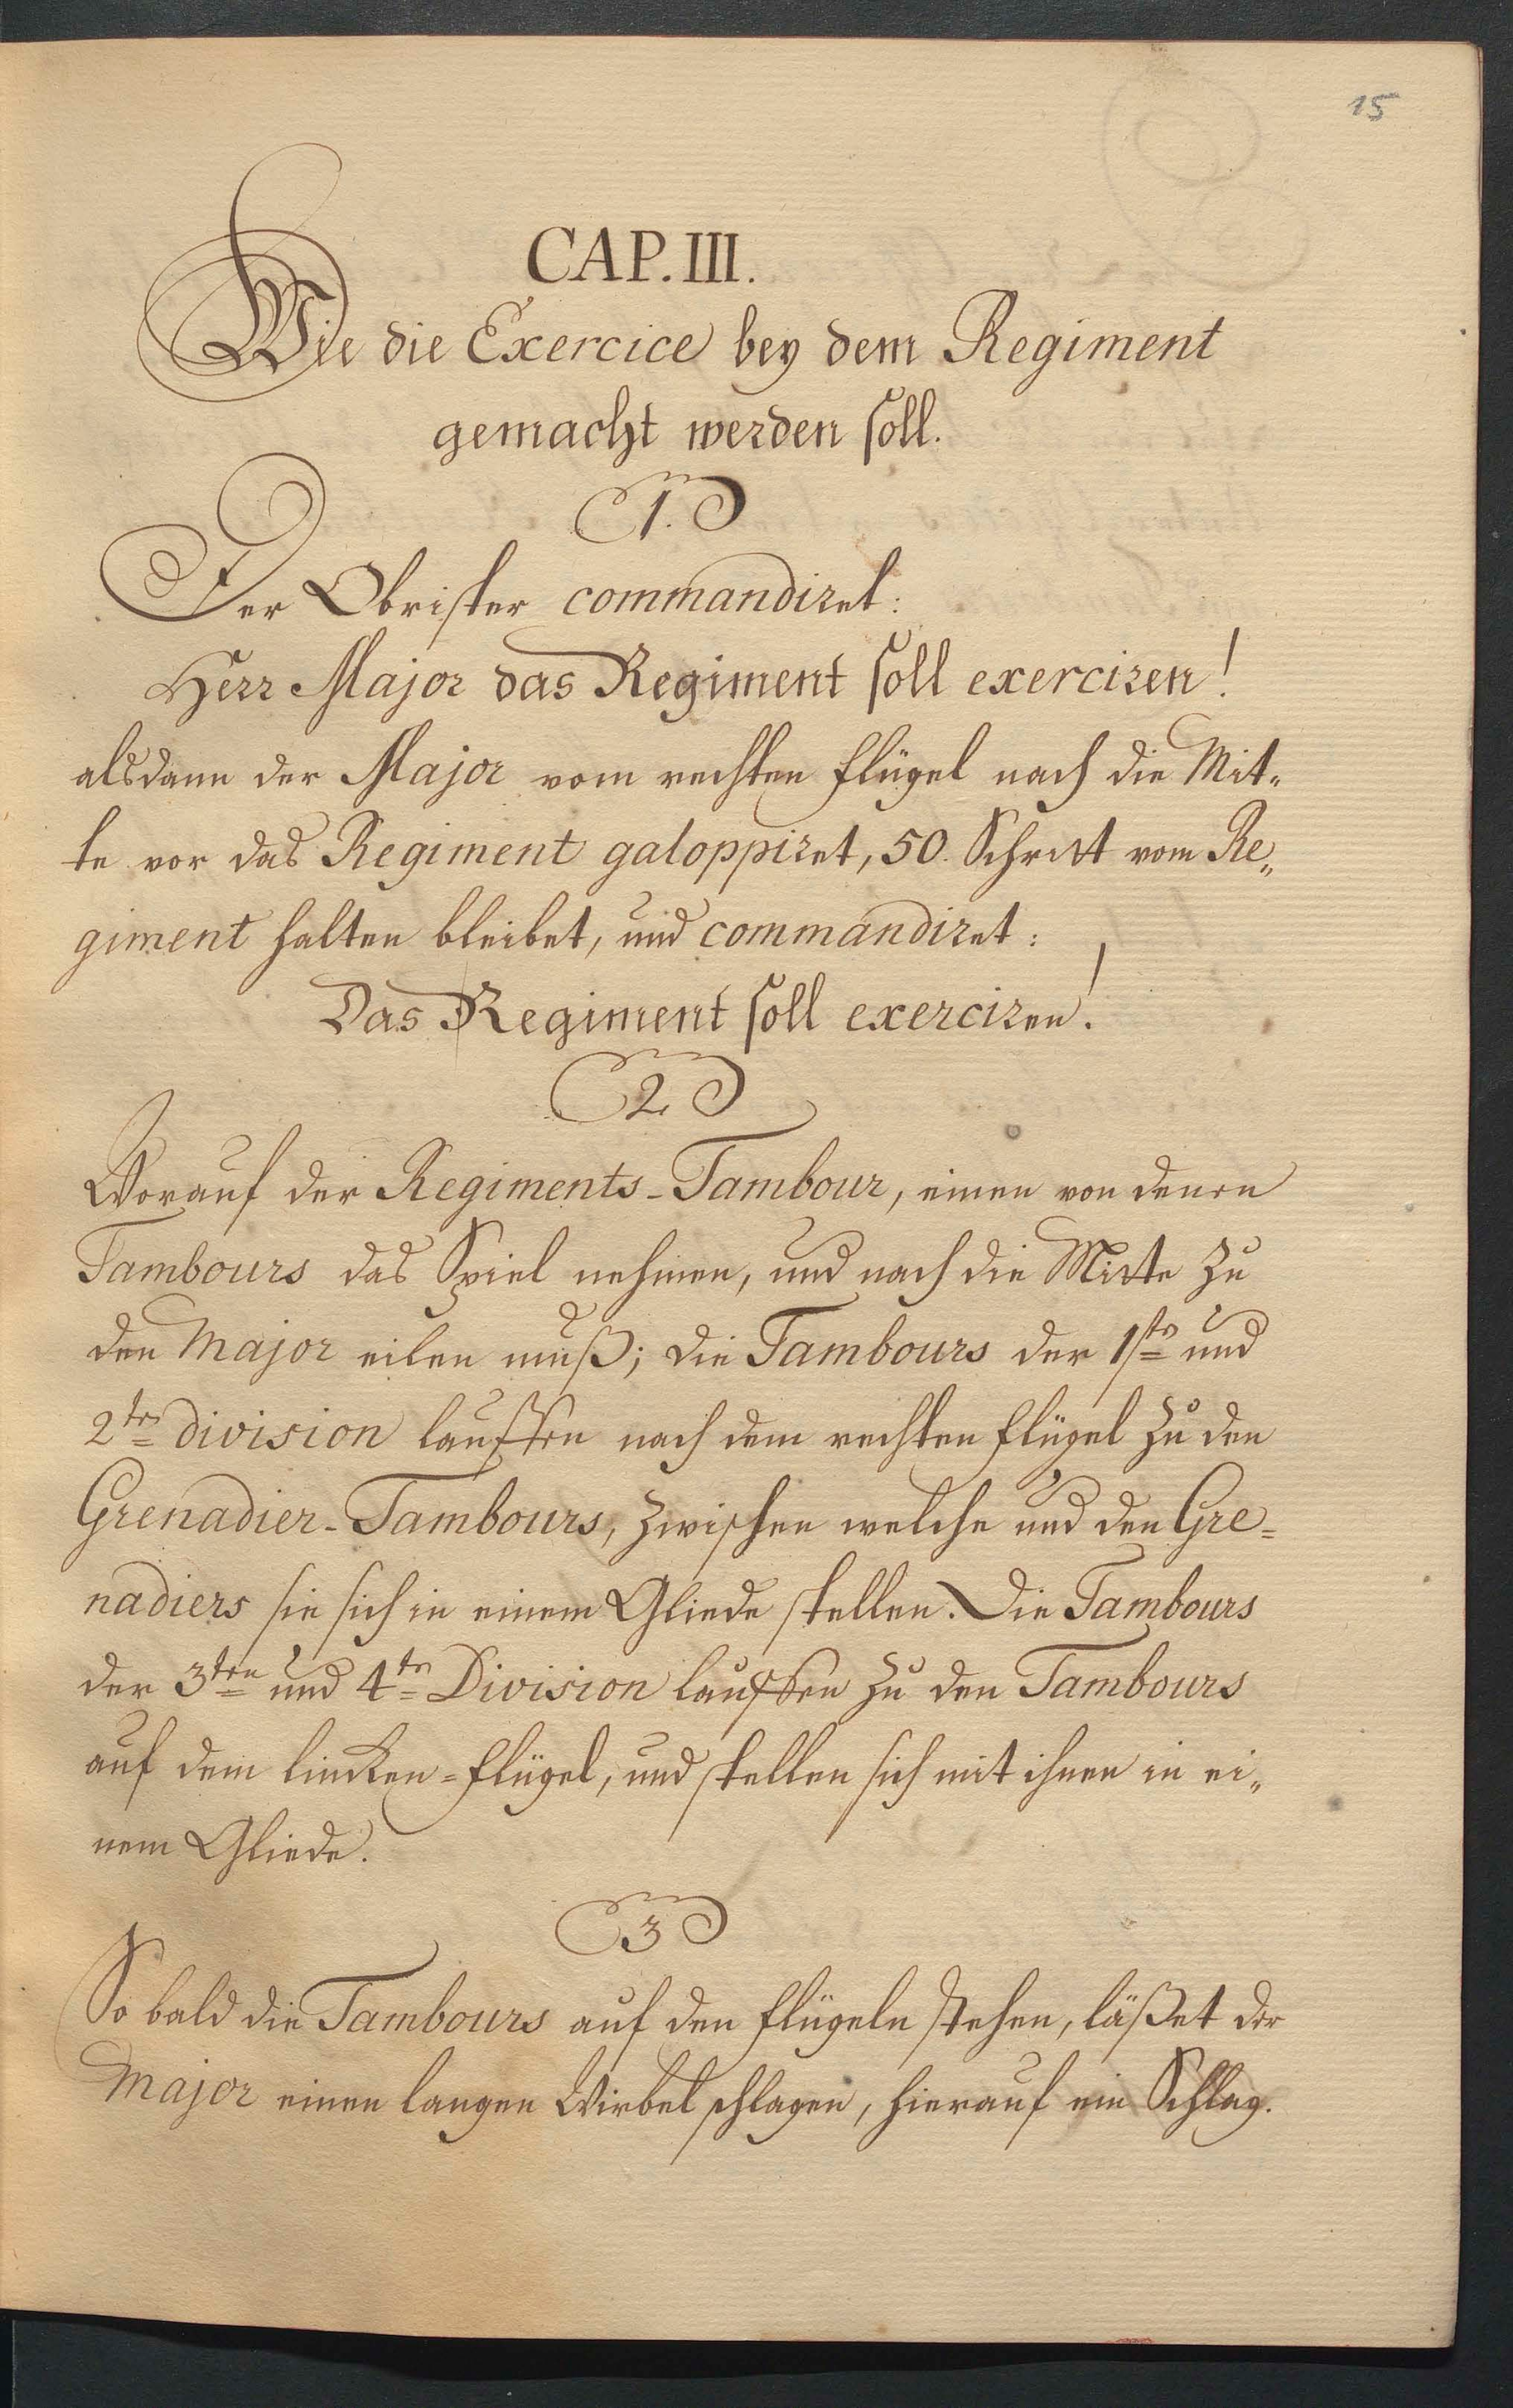 15
CAP. III.
Wie die Exercice bey dem Regiment
gemacht werden soll.
1.
Der Obrister commandiret:
Herr Major das Regiment soll exerciren!
alsdann der Major vom rechten Flügel nach die Mit„
te vor das Regiment galoppiret, 50. Schritt vom Re„
giment halten bleibet, und commandiret:
Das Regiment soll exerciren!
2
Worauf der Regiments-Tambour, einen von denen
Tambours das Spiel nehmen, und nach die Mitte zu
den Major eilen muß; die Tambours der 1ste und
2te division lauffen nach dem rechten Flügel zu den
Grenadier-Tambours, zwischen welche und den Gre=
nadiers sie sich in einem Gliede stellen. Die Tambours
der 3ten und 4te Division lauffen zu den Tambours
auf dem lincken=Flügel, und stellen sich mit ihnen in ei„
nem Gliede.
3
So bald die Tambours auf den Flügeln stehen, läßet der
Major einen langen Wirbel schlagen, hierauf ein Schlag.